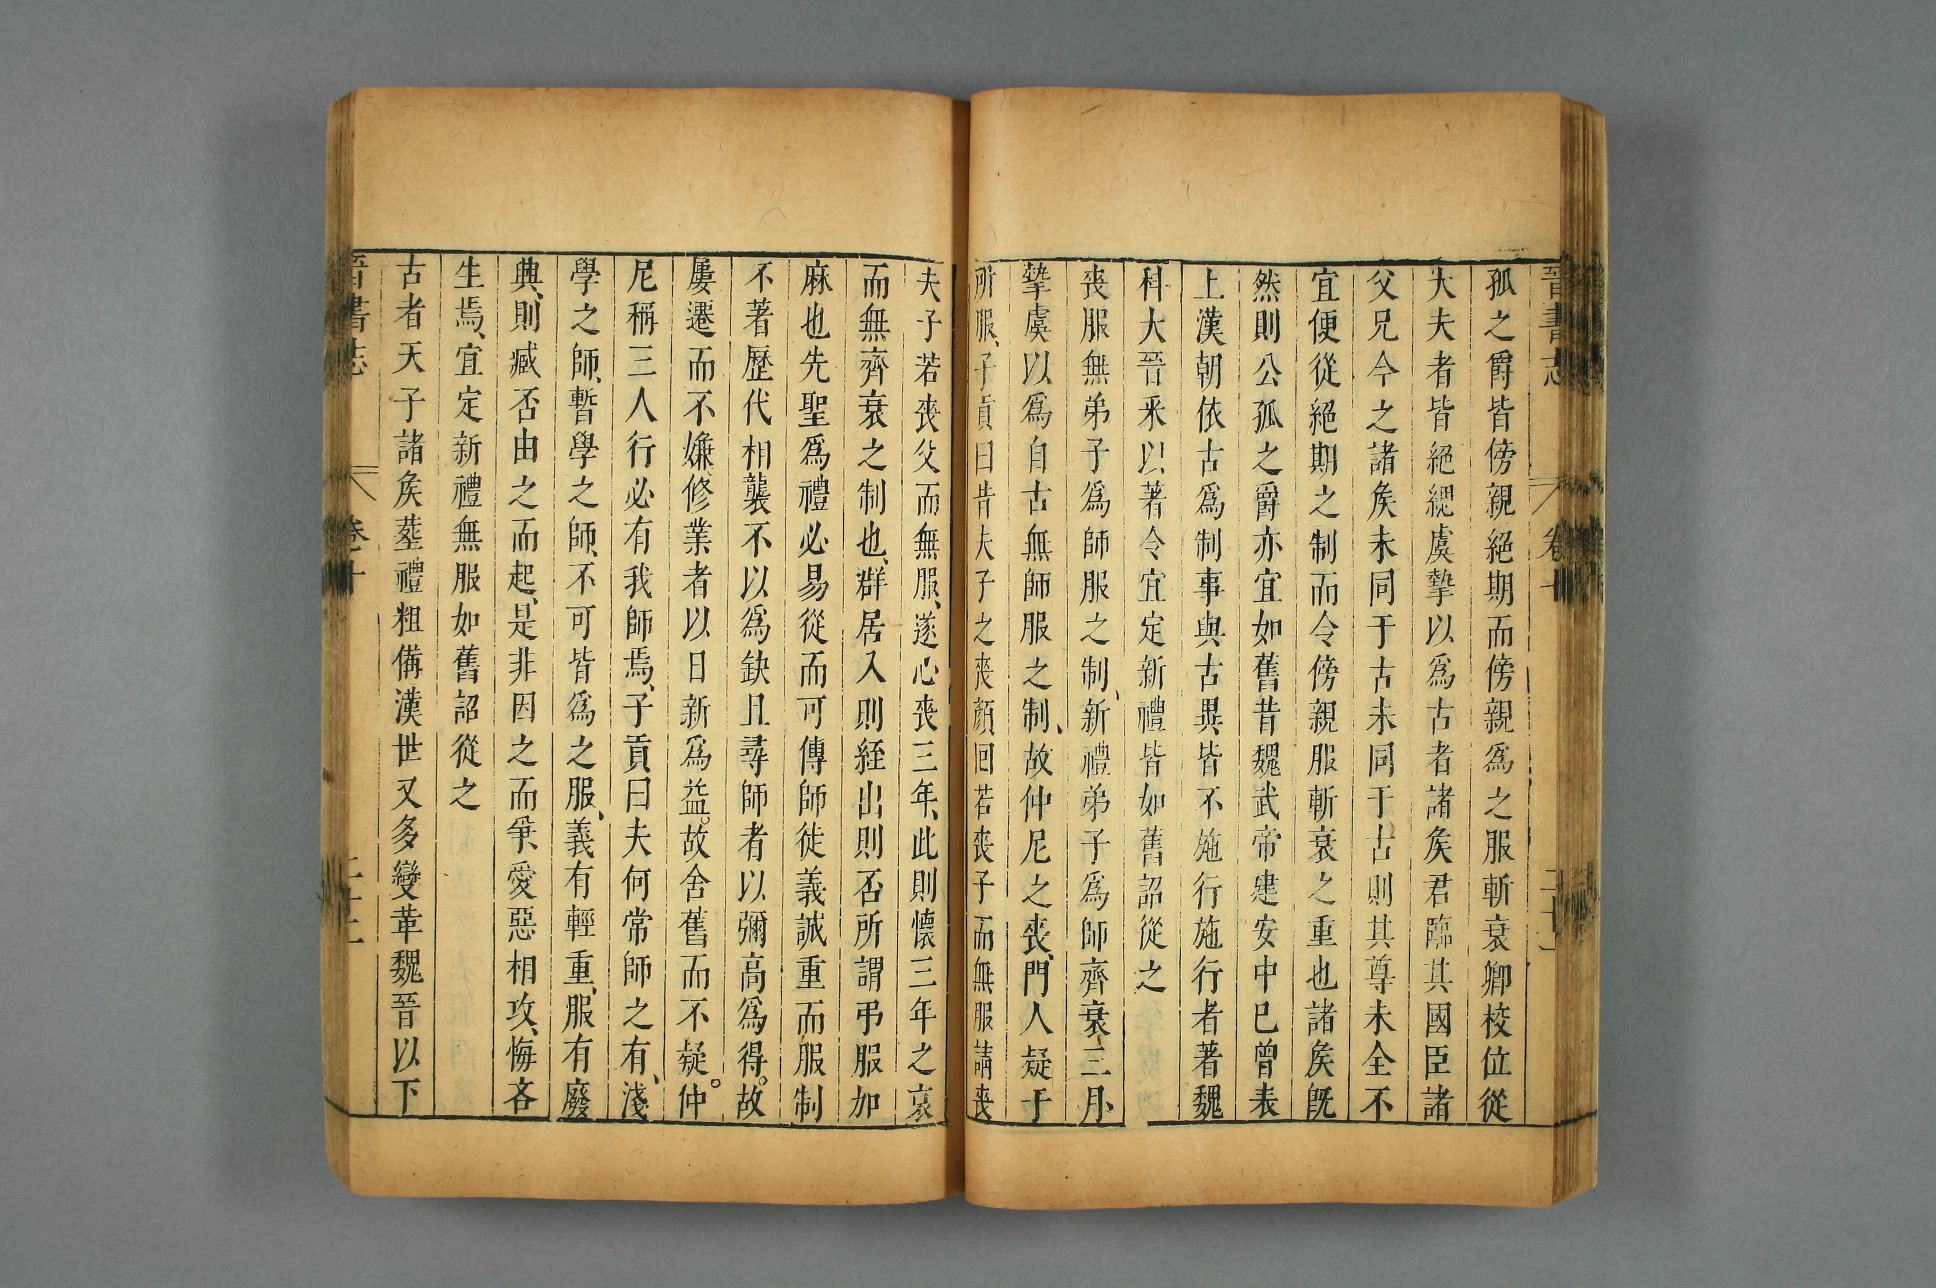 晉書志 卷十
孤之爵皆傍親絕期而傍親爲之服斬衰卿校位從
大夫者皆絕緦虞摯以爲古者諸矦君臨其國臣諸
父兄今之諸矦未同于古未同于古則其尊未全不
宜便從絕期之制而令傍親服斬衰之重也諸矦既
然則公孤之爵亦宜如舊昔魏武帝建安中已曾表
上漢朝依古爲制事與古異皆不施行施行者著魏
科大晉采以著令宜定新禮皆如舊詔從之
喪服無弟子爲師服之制、新禮弟子爲師齊衰三月、
摯虞以爲自古無師服之制、故仲尼之喪、門人疑于
所服、子貢曰昔夫子之喪顏回若喪子而無服請喪
夫子若喪父而無服、遂心喪三年、此則懷三年之哀
而無齊衰之制也、群居入則絰出則否所謂弔服加
麻也先聖爲禮必易從而可傳師徒義誠重而服制
不著歷代相襲不以爲缺且尋師者以彌高爲得。故
屢遷而不嫌修業者以日新爲益。故舍舊而不疑。仲
尼稱三人行必有我師焉、子貢曰夫何常師之有、淺
學之師、暫學之師、不可皆爲之服、義有輕重、服有廢
興、則臧否由之而起、是非因之而爭、愛惡相攻、悔吝
生焉、宜定新禮無服如舊詔從之
古者天子諸矦塟禮粗備漢世又多變革魏晉以下
晉書志 卷十 二十二